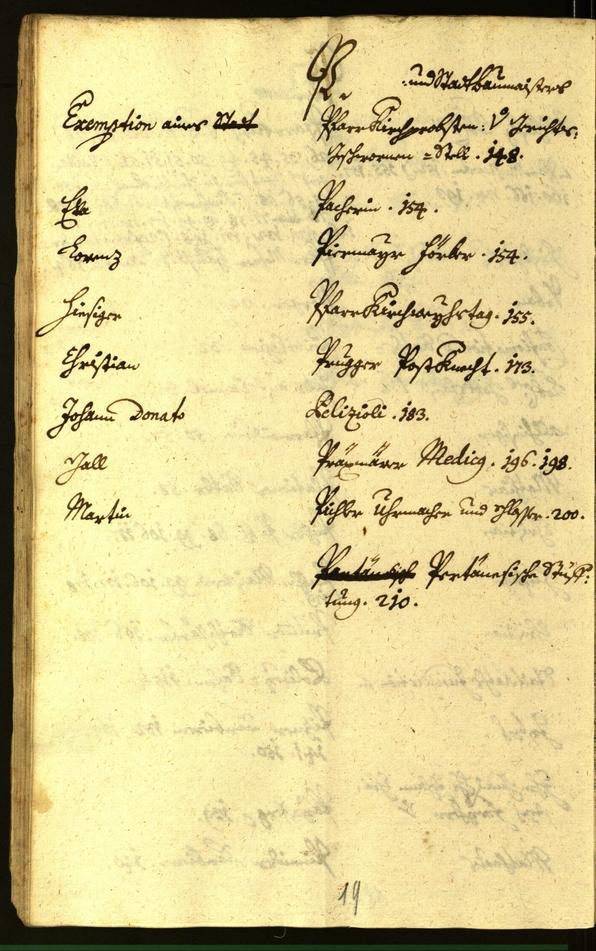 P.
und Stadtbaumaisters
Exemption aines Stadt Pfarr Kirchprobsten: V Gerichts:
Geschwornen = Stell. 148.
Eva Pacherin. 154.
Lorenz Piermayr Förber. 154.
Hiesiger Pfarr Kirchweyhstag. 155.
Christian Prugger Post Knecht. 173.
Johann Donato Pelizioli. 183.
Jall Medicq. 196. 198.
Martin Pichler Uhrmacher und Schlosser. 200.
Pertänesische Stüff:
tung. 210.
19